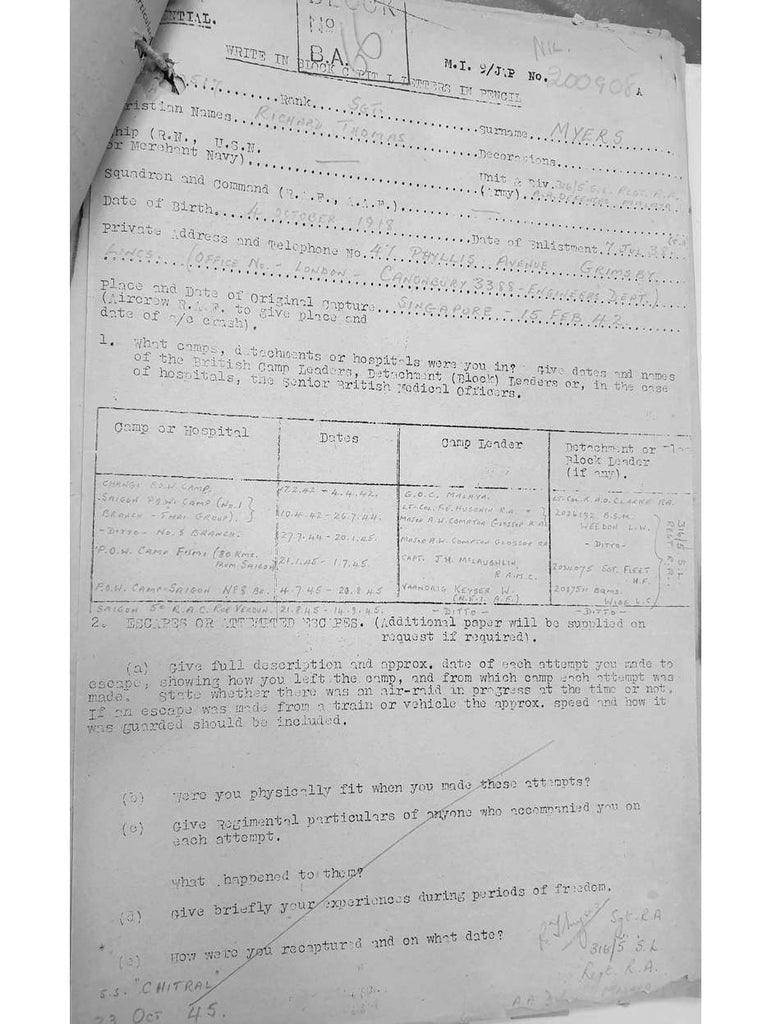 NTIAL.
BLOCK
No
B.A. 16
NIL.
M.I. 9/JAP No. 200908 A
WRITE IN BLOCK C PIT L LETTERS IN PENCIL
517 Rank SGT. Surname MYERS
ristian Names RICHARD THOMAS Decorations
hip (R.N., U.S.N.
or Merchant Navy). —
Unit & Div. 316/5 S.L. REGT. R.A.
(Army). MALAYA
Squadron and Command (R.A.F., A.A.F.). —
Date of Birth 4 OCTOBER 1918 Date of Enlistment 7 JUL 38
Private Address and Telephone No. 47 PHYLLIS AVENUE GRIMSBY
LINCS. (OFFICE NO. - LONDON - CANONBURY 3388 - ENGINEERS DEPT.)
Place and Date of Original Capture SINGAPORE - 15 FEB 42
(Aircrew R.A.F. to give place and
date of a/c crash).
1. What camps, detachments or hospitals were you in? Give dates and names
of the British Camp Leaders, Detachment (Block) Leaders or, in the case
of hospitals, the Senior British Medical Officers.
Camp or Hospital Dates Camp Leader Detachment or
Block Leader
(if any).
CHANGI P.O.W. CAMP. 17.2.42 - 4.4.42. G.O.C. MALAYA. LT-COL. R.A.O. CLARKE RA.
SAIGON P.O.W. CAMP (No. 1 BRANCH - THAI GROUP). 10.4.42 - 26.7.44. LT-COL. F.E. HUGONIN R.A MAJOR A.W. COMPTON GLOSSOP R.A. 2026192 B.S.M. WEEDON L.W.
- DITTO - No. 5 BRANCH. 27.7.44 - 20.1.45. MAJOR A.W. COMPTON GLOSSOP RA - DITTO -
P.O.W. CAMP (80 KMS. FROM SAIGON) 21.1.45 - 1.7.45. CAPT. J.H. McLAUGHLIN, R.A.M.C. 2034075 SGT. FLEET H.F.
P.O.W. CAMP SAIGON No 8 BR. 4.7.45 - 20.8.45 VAANDRIG KEYSER W. (N.E.I. A.F.) BQMS. WIDE L.C.
SAIGON 5e R.A.C. RUE VERDUN. 21.8.45 - 14.9.45. - DITTO - - DITTO -
316/5 S.L
REGT R.A.
2. ESCAPES OR ATTEMPTED ESCAPES. (Additional paper will be supplied on
request if required).
(a) Give full description and approx. date of each attempt you made to
escape, showing how you left the camp, and from which camp each attempt was
made. State whether there was an air-raid in progress at the time or not.
If an escape was made from a train or vehicle the approx. speed and how it
was guarded should be included.
(b) Were you physically fit when you made these attempts?
(c) Give Regimental particulars of anyone who accompanied you on
each attempt.
What happened to them?
(d) Give briefly your experiences during periods of freedom.
(e) How were you recaptured and on what date?
Sgt. R.A
316/5 S.L
Regt. R.A.
S.S. "CHITRAL"
23 OCT 45.